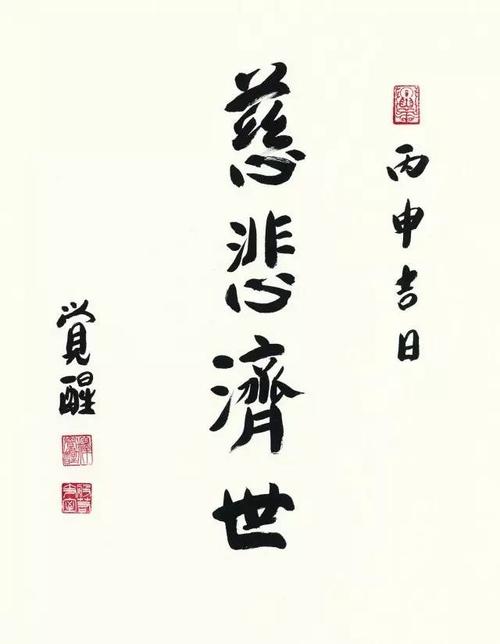 丙申吉日
慈悲濟世
覺醒